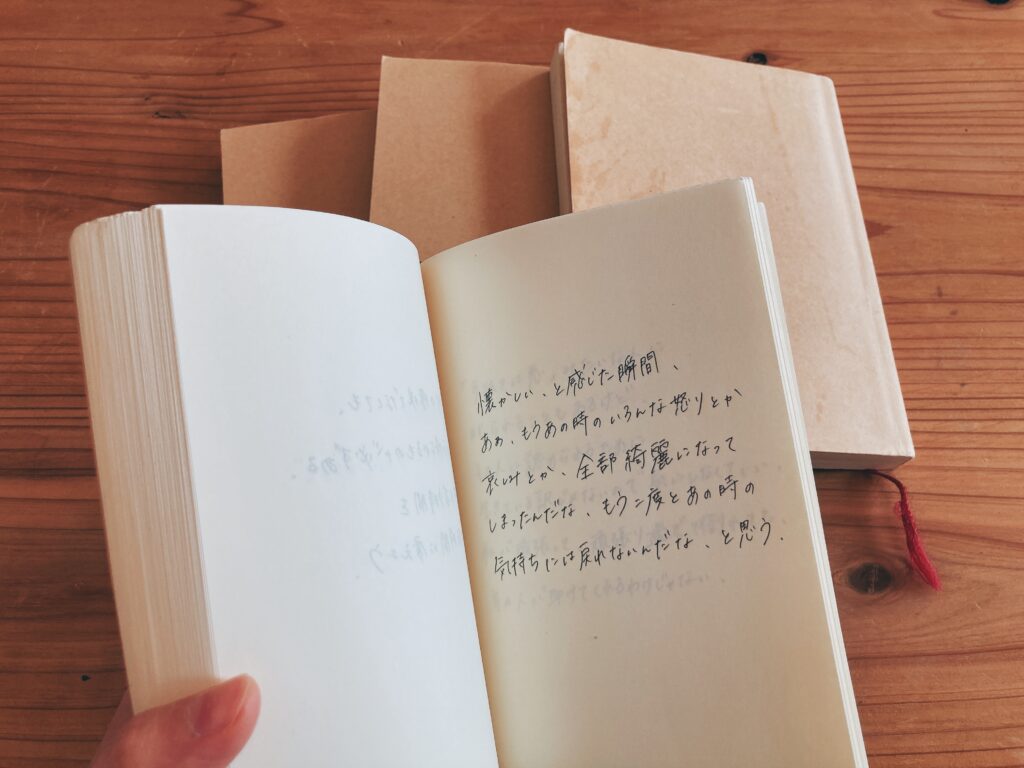 懐かしい、と感じた瞬間、
ああ、もうあの時のいろんな怒りとか
哀しみとか、全部綺麗になって
しまったんだな、もう二度とあの時の
気持ちには戻れないんだな、と思う.